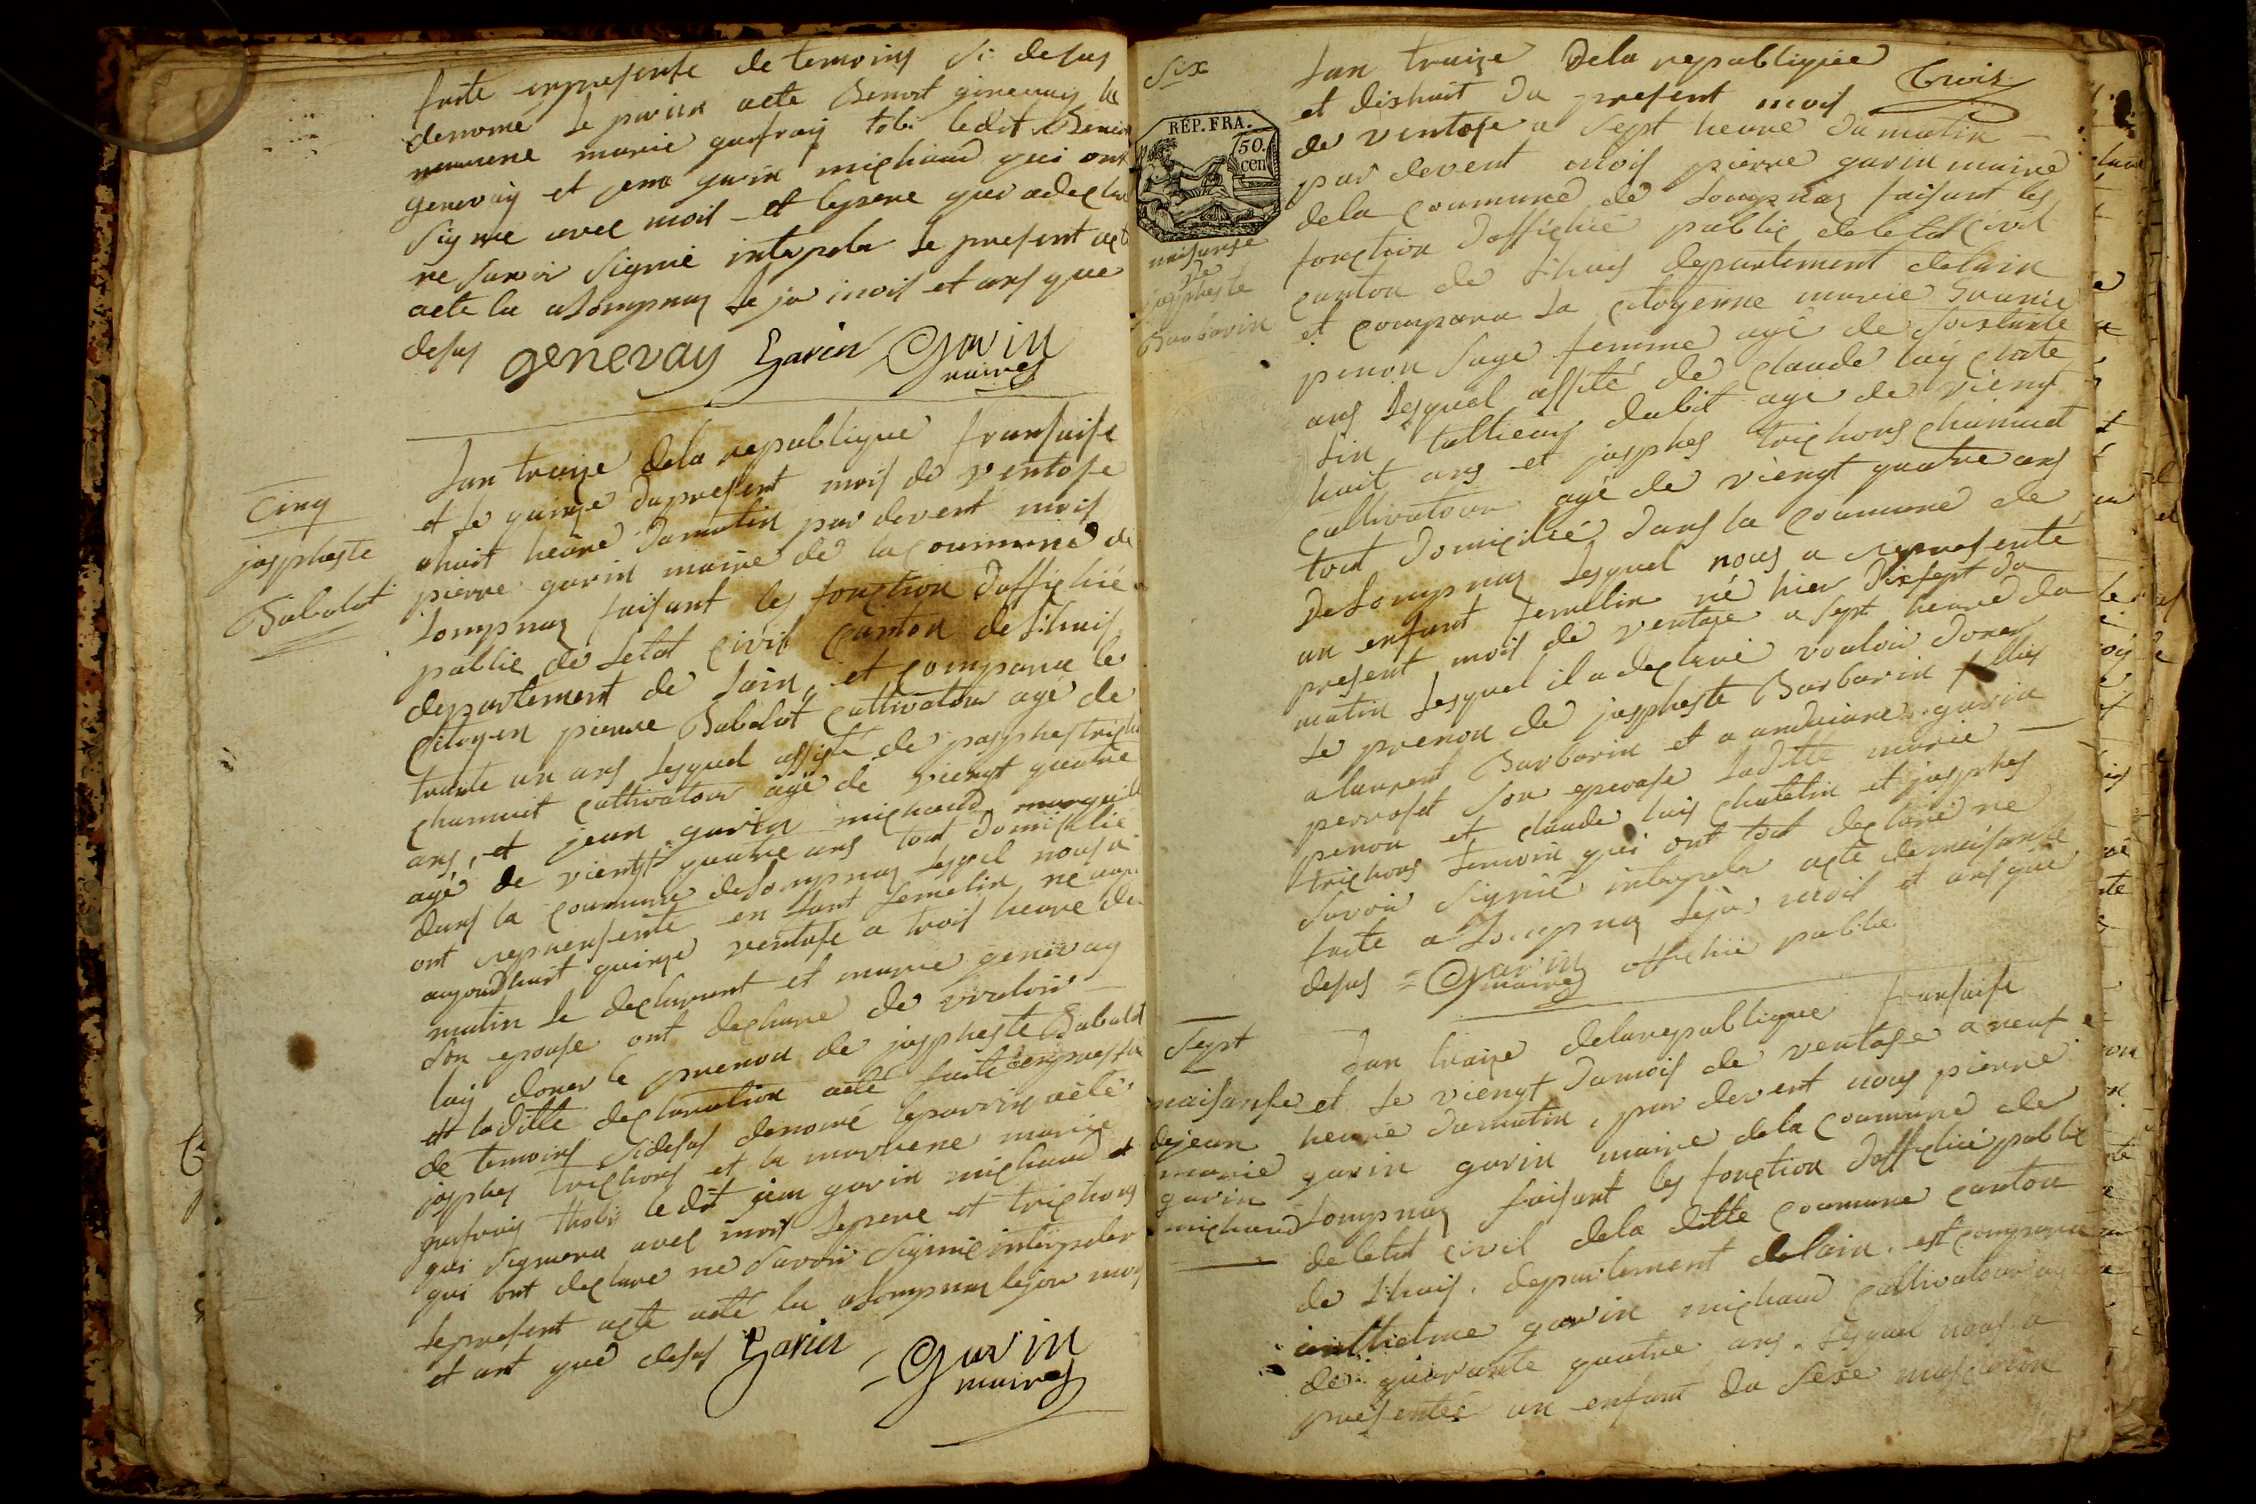 faite enpresense de temoins si desus
denomé le parien acte Benoit genevay la
marene marie gusfray tobi ledit Benoit
genevay et jean gavin michaud qui ont
signie avec mois et lepere qui adeclare
ne savoir signié interpeler le present act
acte lu alompnaz le jor mois et ans que
desus genevay Gavin Gavin
maire
Cinq
josepheste
Babolat
Lan traize dela republique fransaise
et le quinze dupresent mois de ventose
ahuit heure damatin par devent mois
pierre gavin maire de la coummune de
lompnaz faisant les fonction daffichié
public de letat civil canton de Lhuis
departement de Lain et comparu le
Citoyen pierre Babolat cultivatour agé de
trante un ans lesquel assisté de josephes trichon
chamuit cultivatour agé de viengt quatre
ans, et jean gavin michaud
agé de viengt quatre ans tout domicilié
dans la coummune delompnaz lesquel nous a
ont reprensenté en fant femelin né
aujourdhuit quinze ventose a trois heure du
matin le declarent et marie genevay
son epouse ont declaré de vouloir
luy doner le prenon de josepheste Babolat
et laditte declaration acté faite enpresense
de temoins sidesus denomé leparrin acte
josephes trichons et la marrene marie
gusfrais thobi ledit jean gavin michaud et
qui signera avec mois lepere et trichons
qui ont declare ne savoir signié interpeler
lepresent acte acté lu alompnaz lejour mois
et ant que desus Gavin Gavin
maire
Six
RÉP. FRA.
50.
cen
naisanse
de
josepheste
Barbarin
Lan traize dela republiquee Trois
et dishuit du present mois
de ventose a sept heure damatin
par devent mois pierre gavin maire
dela coummune de lompnaz faisant les
fonction daffichié public deletat civil
canton de Lhuis departement delain
et comparu la citoyenne marie
penon sage femme agé de soistante
ans lesquel assité de claude luy chate
lin tallieur dabit agé de viengt
huit ans et josephes trichons chamuit
cultivatour agé de viengt quatre ans
tout domicilié dans la coummune de
Delompnaz lesquel nous a representé
un enfant femelin né hier dixsept du
present mois de ventose a sept heure du
matin lesquel il a declaré vouloir doner
le prenon de josepheste Barbarin fillie
a laurent Barbarin et a andriane gavin
perroset son epouse laditte marie
penon et claude luis chatelin et josephes
trichons temoin qui ont tout declaré ne
savoir signié interpeler acte de naisanse
faite a lompnaz lejor mois et ans que
desus = Gavin affichié public
maire
Sept
naisanse
dejean
marie
gavin
michaud
Lan traize delarepublique fransaise
et le viengt damois de ventose a neuf
heure damatin, par devent nous pierre
gavin gavin maire dela coummune de
lompnaz faisant les fonction daffichié public
deletat civil dela ditte coummune canton
de Lhuis. departement delain. est comparu
anthelme gavin michaud cultivatour agé
de quarante quatre ans. lesquel nous a
presentéé un enfant du sexe masculin